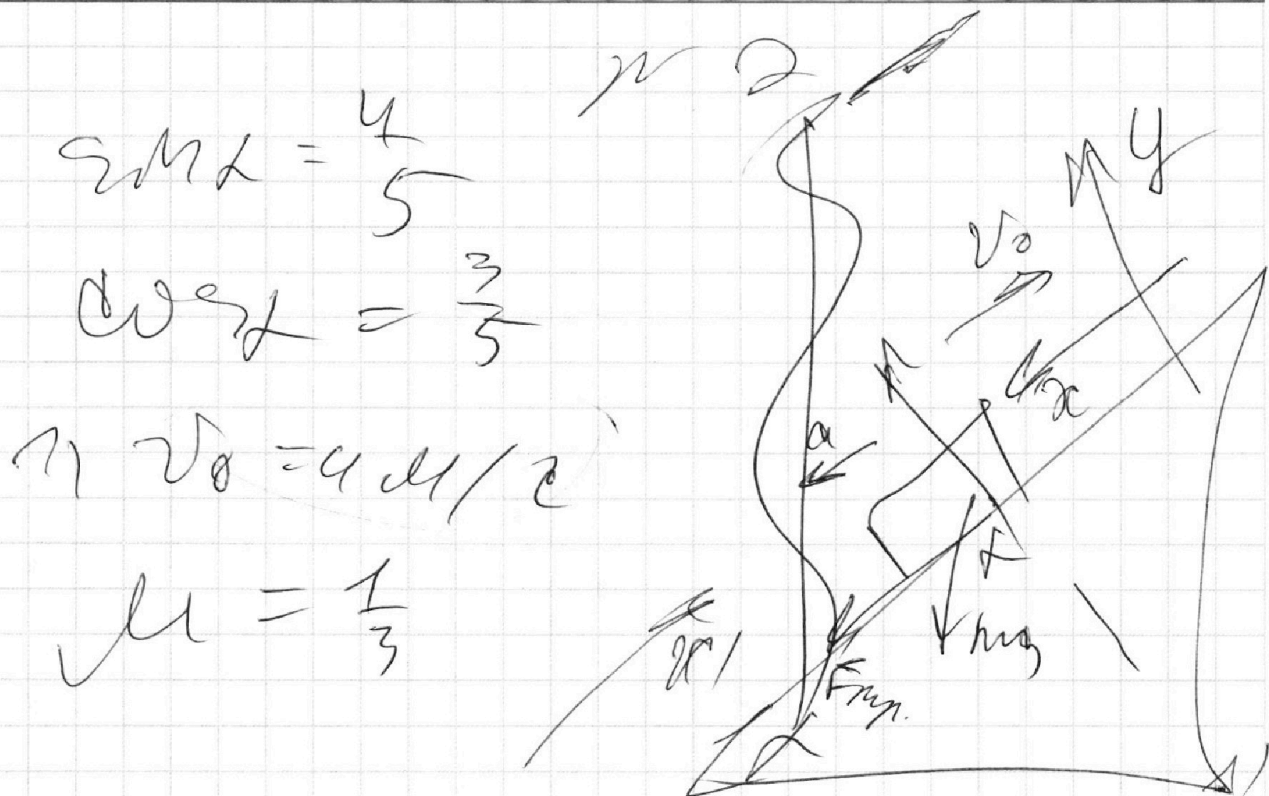 № 2
sin α = 4/5
cos α = 3/5
1) V₀ = 4 м/с
μ = 1/3
y
V₀
x
a
α
mg
x'
Fтр.
α